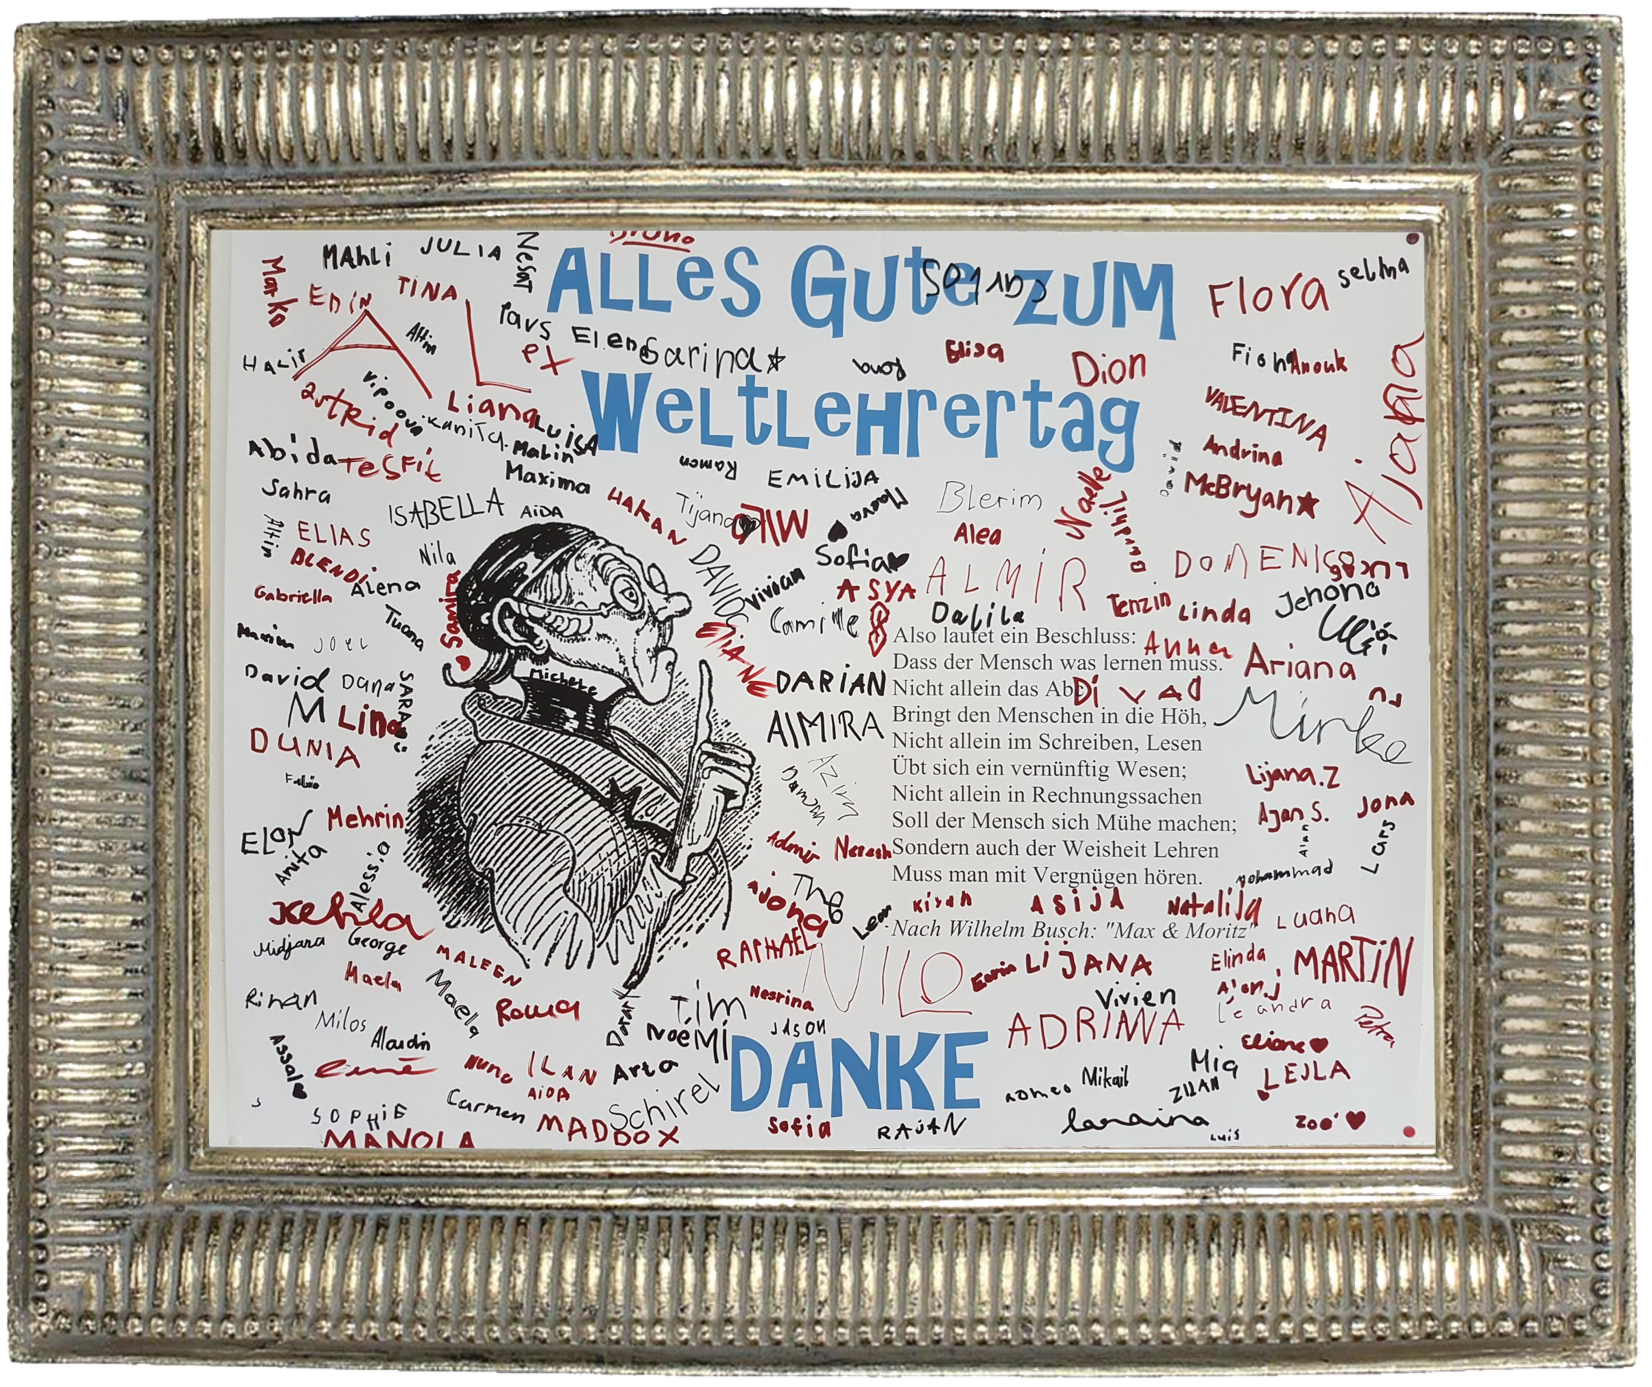 Bruno
MAhLi JULIA Nesat
ALLES GUTE ZUM
Carlos
Flora selma
Marko EDIN TINA
Altin Lars Elena Sarina
Halil
Rona Elisa Dion
Fiona Anouk
Ajana
astrid Liana Luisa
WELTLEHRERTAG
VALENTINA
Abida TeSFit Malin
Maxima
Ramon EMILIJA
David Andrina
McBryan
Sahra ISABELLA AiDA HAKAN Tijana Maeva Blerim Naelle
Altin ELIAS
BLENDi Nila
Sofia Alea
DAVID Vivian ASYA ALMIR
Gabriella Alena Tuana
Samira
Camille Dalila Tenzin Linda Jenona
Marin JOEL
Also lautet ein Beschluss:
Anna
Dass der Mensch was lernen muss.
Ariana
David Dana SARA Michele
DARIAN
Nicht allein das Abc
M Lina
AlMIRA
Bringt den Menschen in die Höh,
Mirke
DUNIA
Nicht allein im Schreiben, Lesen
Fabio
AZim
Übt sich ein vernünftig Wesen;
Lijana.Z
Nicht allein in Rechnungssachen
Ajan S. Jona
ELON Mehrin
Soll der Mensch sich Mühe machen;
Lars
Anita Alessia
Admir
Sondern auch der Weisheit Lehren
Muss man mit Vergnügen hören.
Mohammad
Ajona Leon Kisah ASIJA Natalija Luana
Midjana George
Nach Wilhelm Busch: "Max & Moritz"
RAPHAEL
MALEEN
Maela Maela
NILO LiJANA Elinda MARTiN
Rinan Roma Tim Nesrina Vivien Leandra
Milos Alaudin NOEMI JASON ADRIANA Petra
Assal Nuno ILAN Arta
AiDA
Schirel
DANKE
Eliane
Mia
ZILAN LEJLA
romeo Mikail
SOPHiE Carmen MADDOX
MANOLA
Sofia RAJAN
Loraina Luis Zoé